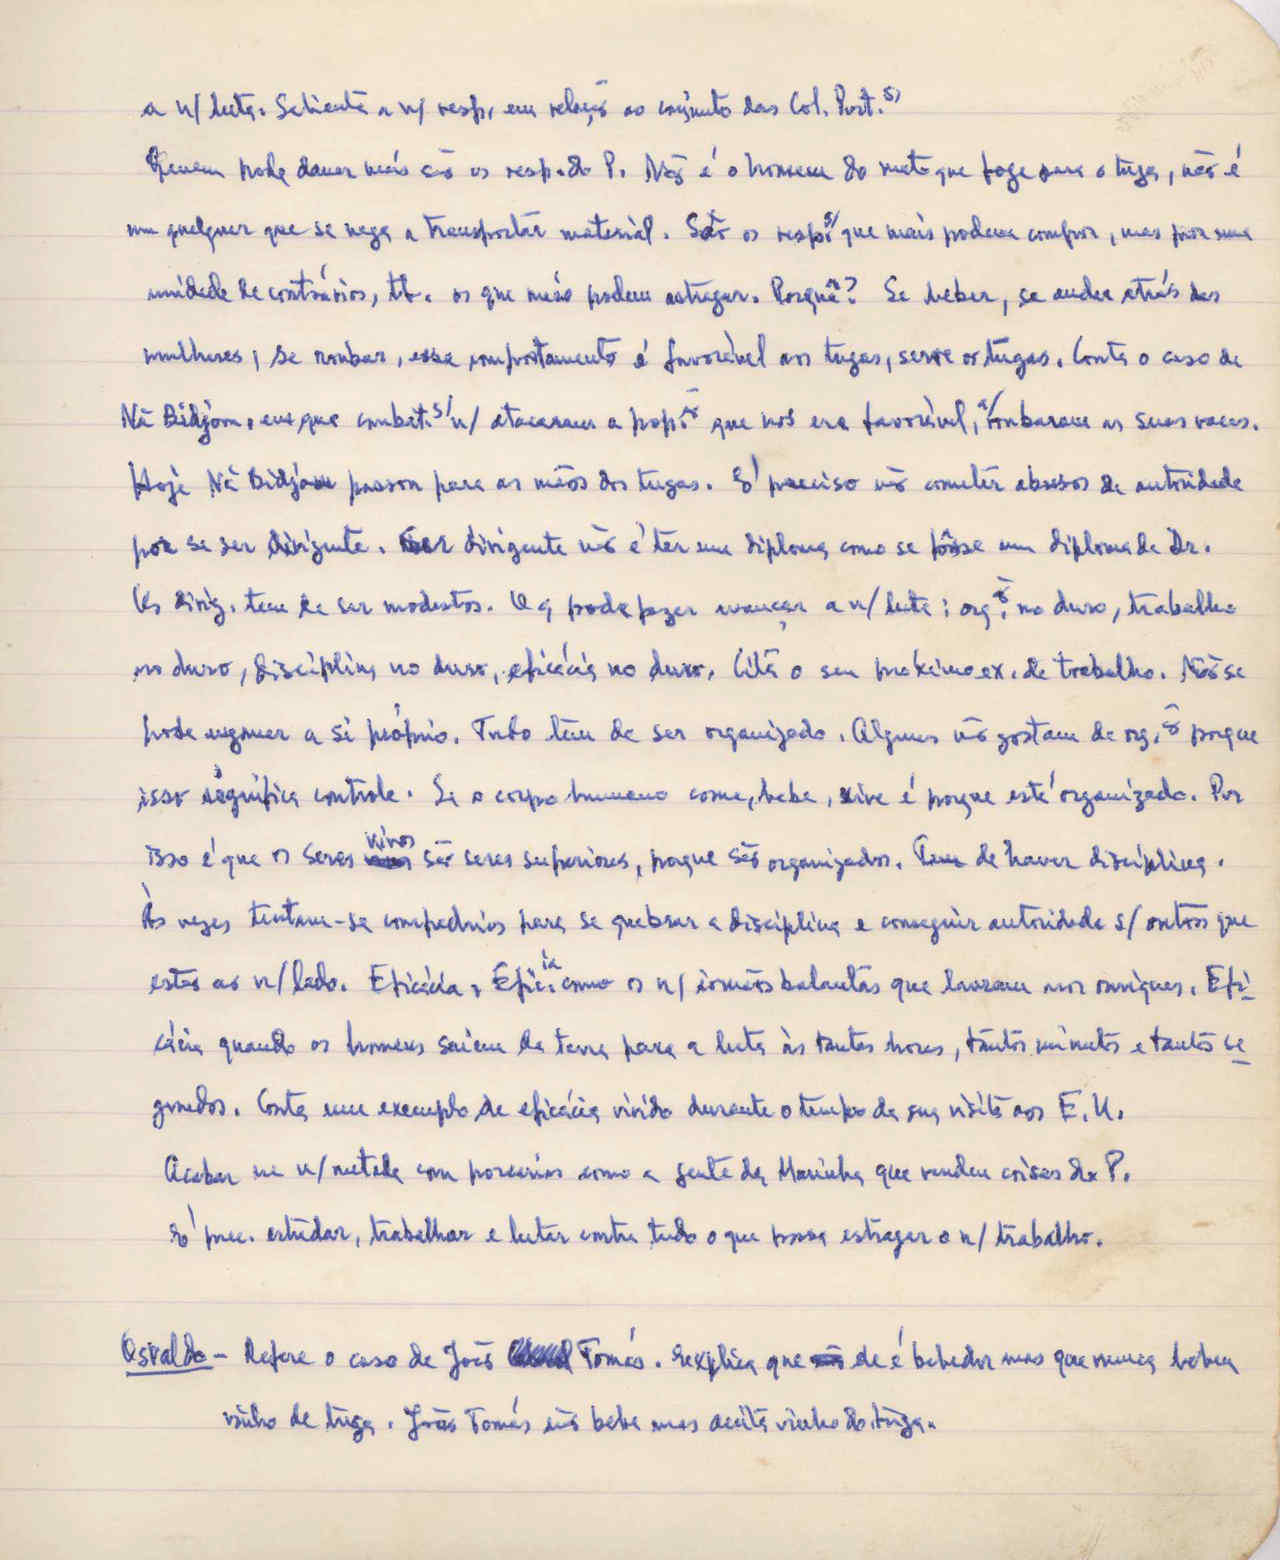 a n/ luta. Salienta a n/ resp. em relação ao conjunto das Col. Port.s/
Quem pode danar mais são os resp. do P. Não é o homem do mato que foge para o tuga, não é
um qualquer que se nega a transportar material. São os resp.s/ que mais podem compor, mas por uma
unidade de contrários, tb. os que mais podem estragar. Porquê? Se beber, se andar atrás das
mulheres, se roubar, esse comportamento é favorável aos tugas, serve os tugas. Conta o caso de
Nã Bidjom, em que combat.s/ n/ atacaram a pop.ão que nos era favorável, roubaram as suas vacas.
Hoje Nã Bidjom passou para as mãos dos tugas. É preciso não cometer abusos de autoridade
por se ser dirigente. Ser dirigente não é ter um diploma como se fôsse um diploma de Dr.
Os dirig. tem de ser modestos. O q pode fazer avançar a n/ luta: org.ão no duro, trabalho
no duro, disciplina no duro, eficácia no duro. Cita o seu próximo ex. de trabalho. Não se
pode enganar a si próprio. Tudo tem de ser organizado. Alguns não gostam de org.ão porque
isso significa controle. Se o corpo humano come, bebe, vive é porque está organizado. Por
isso é que os seres vivos são seres superiores, porque são organizados. Tem de haver disciplina.
Às vezes tentam-se compadrios para se quebrar a disciplina e conseguir autoridade s/ outros que
estão ao n/ lado. Eficácia. Efic.ia como os n/ irmãos balantas que lavram nos ouriques. Efi-
cácia quando os homens saiem da terra para a luta às tantas horas, tantos minutos e tantos se-
gundos. Conta um exemplo de eficácia vivido durante o tempo da sua visita aos E.U.
Acabar na n/ metade com porcarias como a gente da Marinha que vendeu coisas do P.
É prec. estudar, trabalhar e lutar contra tudo o que possa estragar o n/ trabalho.
Osvaldo - Refere o caso de João Tomás. Explica que ele é bebedor mas que nunca bebeu
vinho de tuga. João Tomás não bebe mas aceita vinho do tuga.